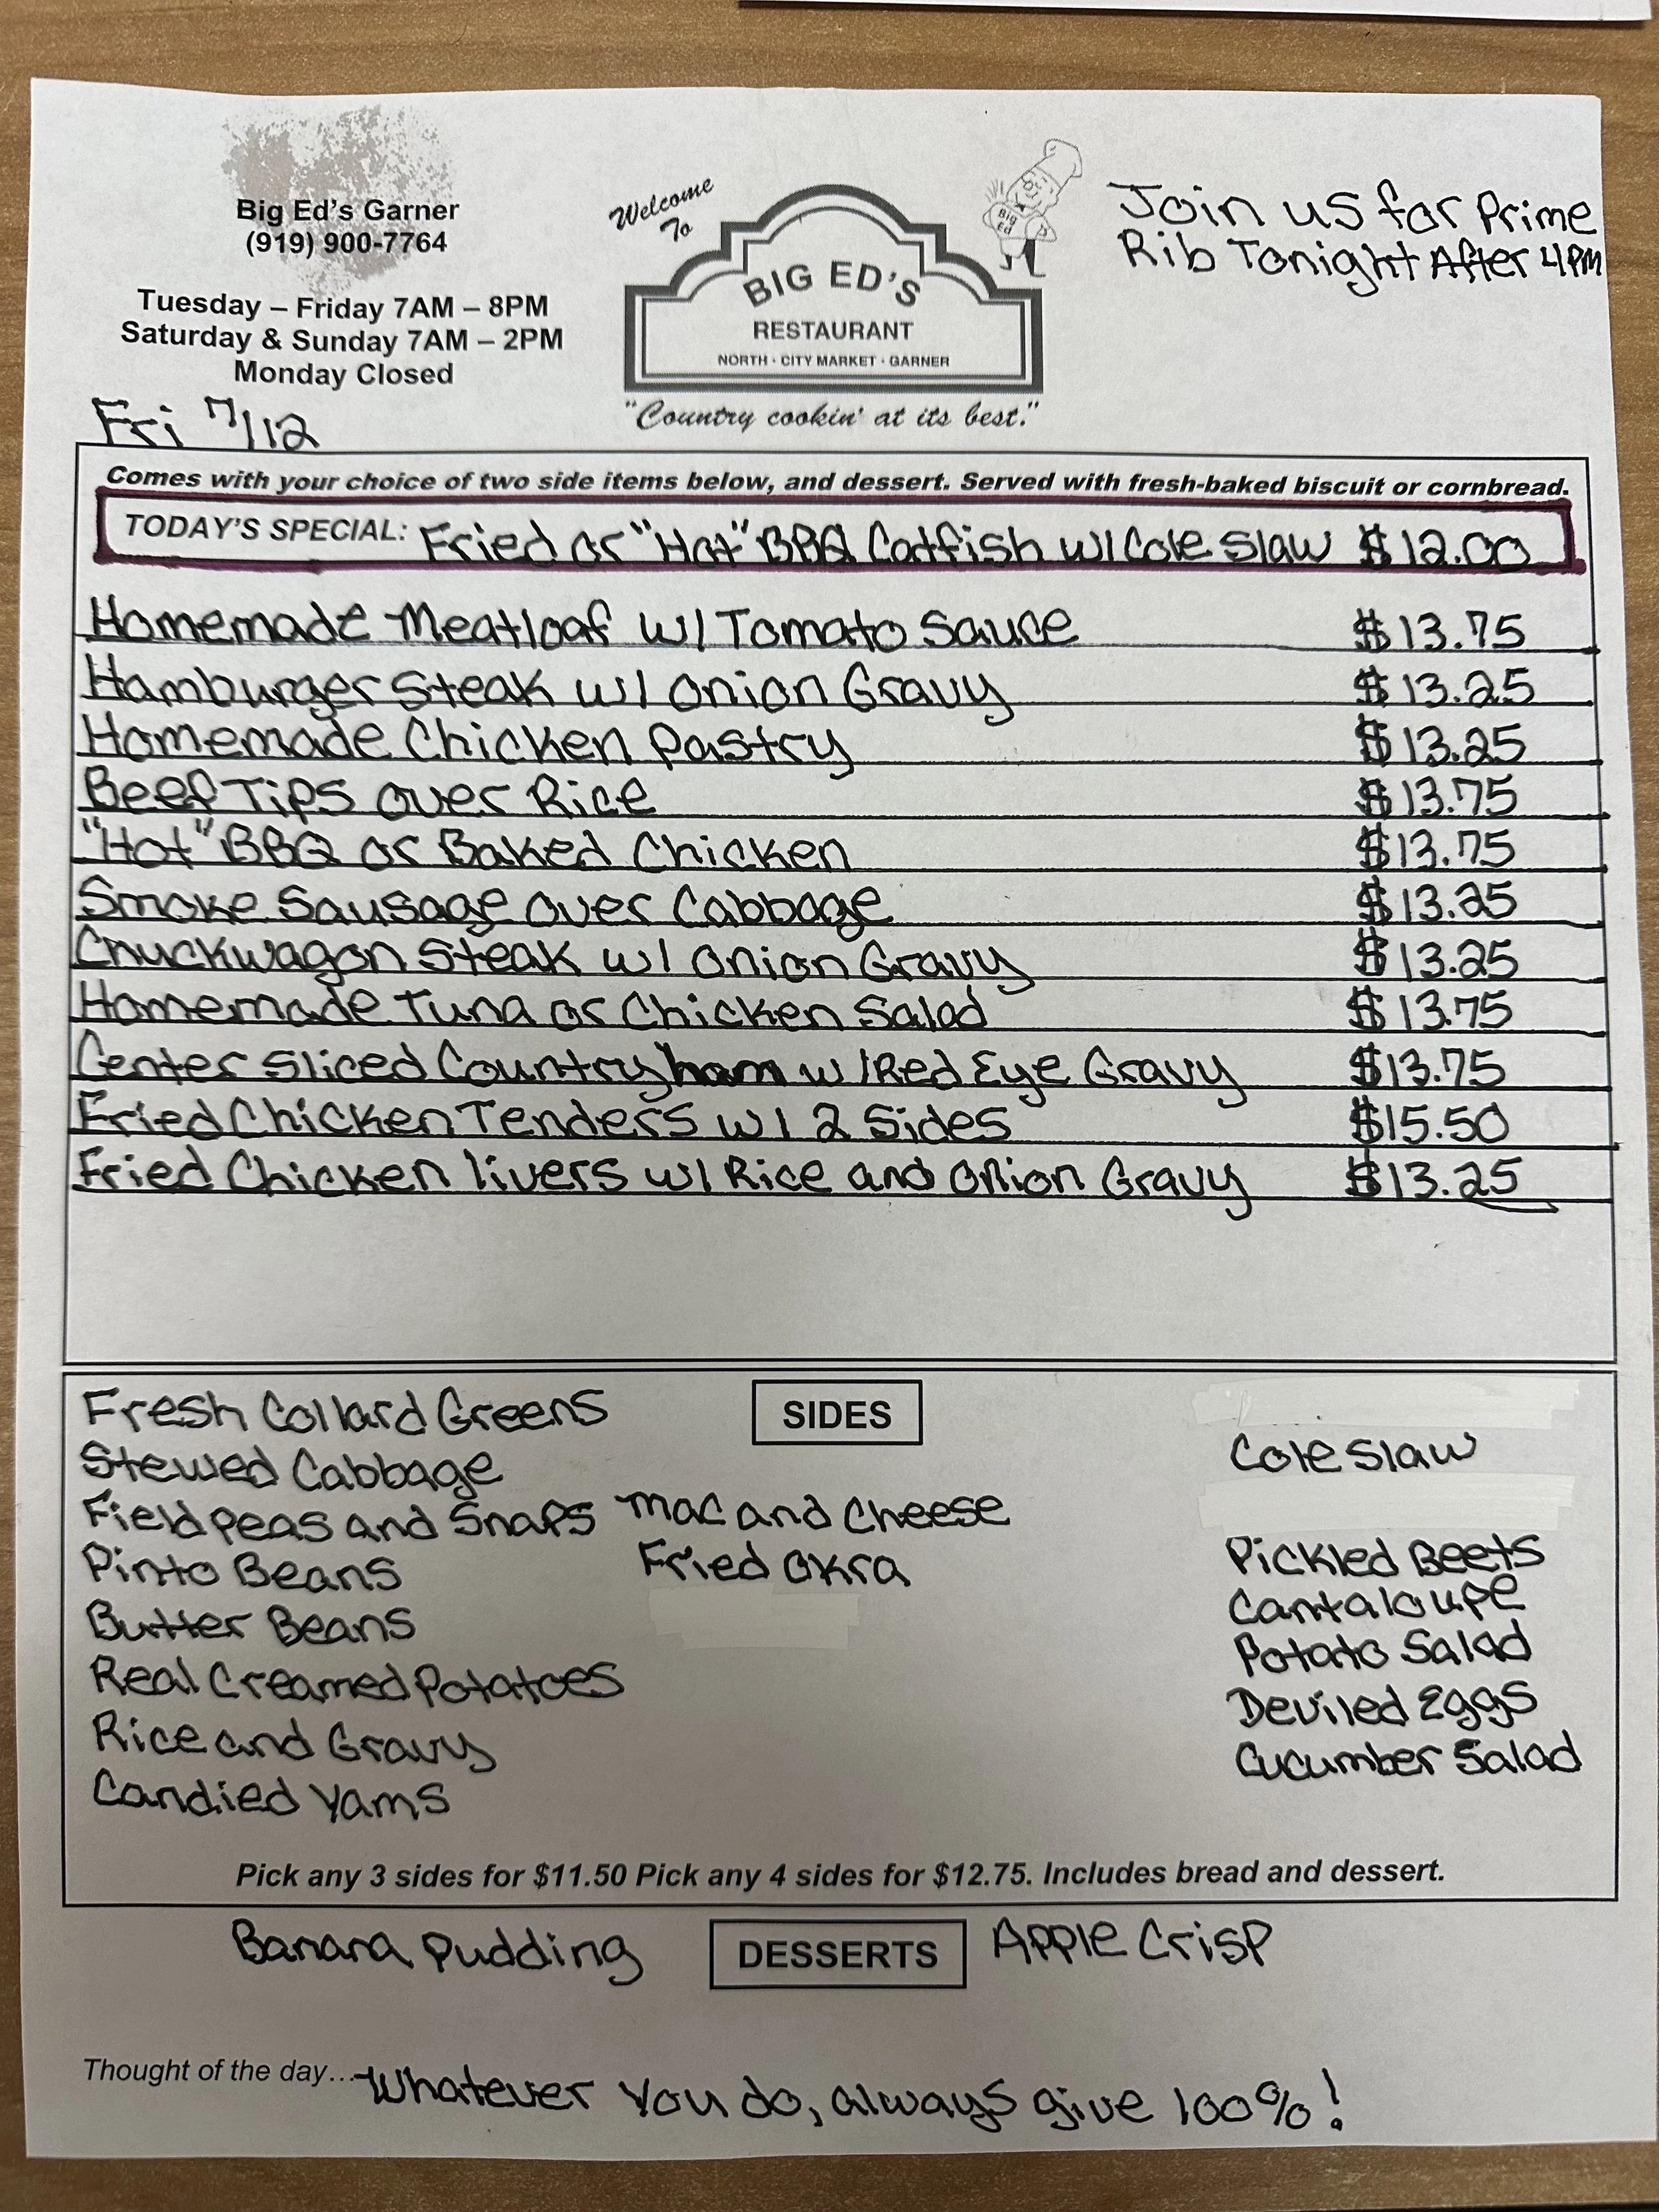 Big Ed's Garner
(919) 900-7764
Tuesday – Friday 7AM – 8PM
Saturday & Sunday 7AM – 2PM
Monday Closed
Fri 7/12
Welcome
To
Big Ed
BIG ED'S
RESTAURANT
NORTH · CITY MARKET · GARNER
"Country cookin' at its best."
Join us for Prime
Rib Tonight After 4PM
Comes with your choice of two side items below, and dessert. Served with fresh-baked biscuit or cornbread.
TODAY'S SPECIAL: Fried or "Hot" BBQ Catfish w/ Cole Slaw $12.00
Homemade Meatloaf w/ Tomato Sauce $13.75
Hamburger Steak w/ Onion Gravy $13.25
Homemade Chicken Pastry $13.25
Beef Tips over Rice $13.75
"Hot" BBQ or Baked Chicken $13.75
Smoke Sausage over Cabbage $13.25
Chuckwagon Steak w/ Onion Gravy $13.25
Homemade Tuna or Chicken Salad $13.75
Center Sliced Country ham w/ Red Eye Gravy $13.75
Fried Chicken Tenders w/ 2 Sides $15.50
Fried Chicken livers w/ Rice and Onion Gravy $13.25
SIDES
Fresh Collard Greens
Stewed Cabbage
Field peas and Snaps
Pinto Beans
Butter Beans
Real Creamed Potatoes
Rice and Gravy
Candied Yams
Mac and Cheese
Fried Okra
Cole Slaw
Pickled Beets
Cantaloupe
Potato Salad
Deviled Eggs
Cucumber Salad
Pick any 3 sides for $11.50 Pick any 4 sides for $12.75. Includes bread and dessert.
Banana Pudding DESSERTS Apple Crisp
Thought of the day... Whatever you do, always give 100%!